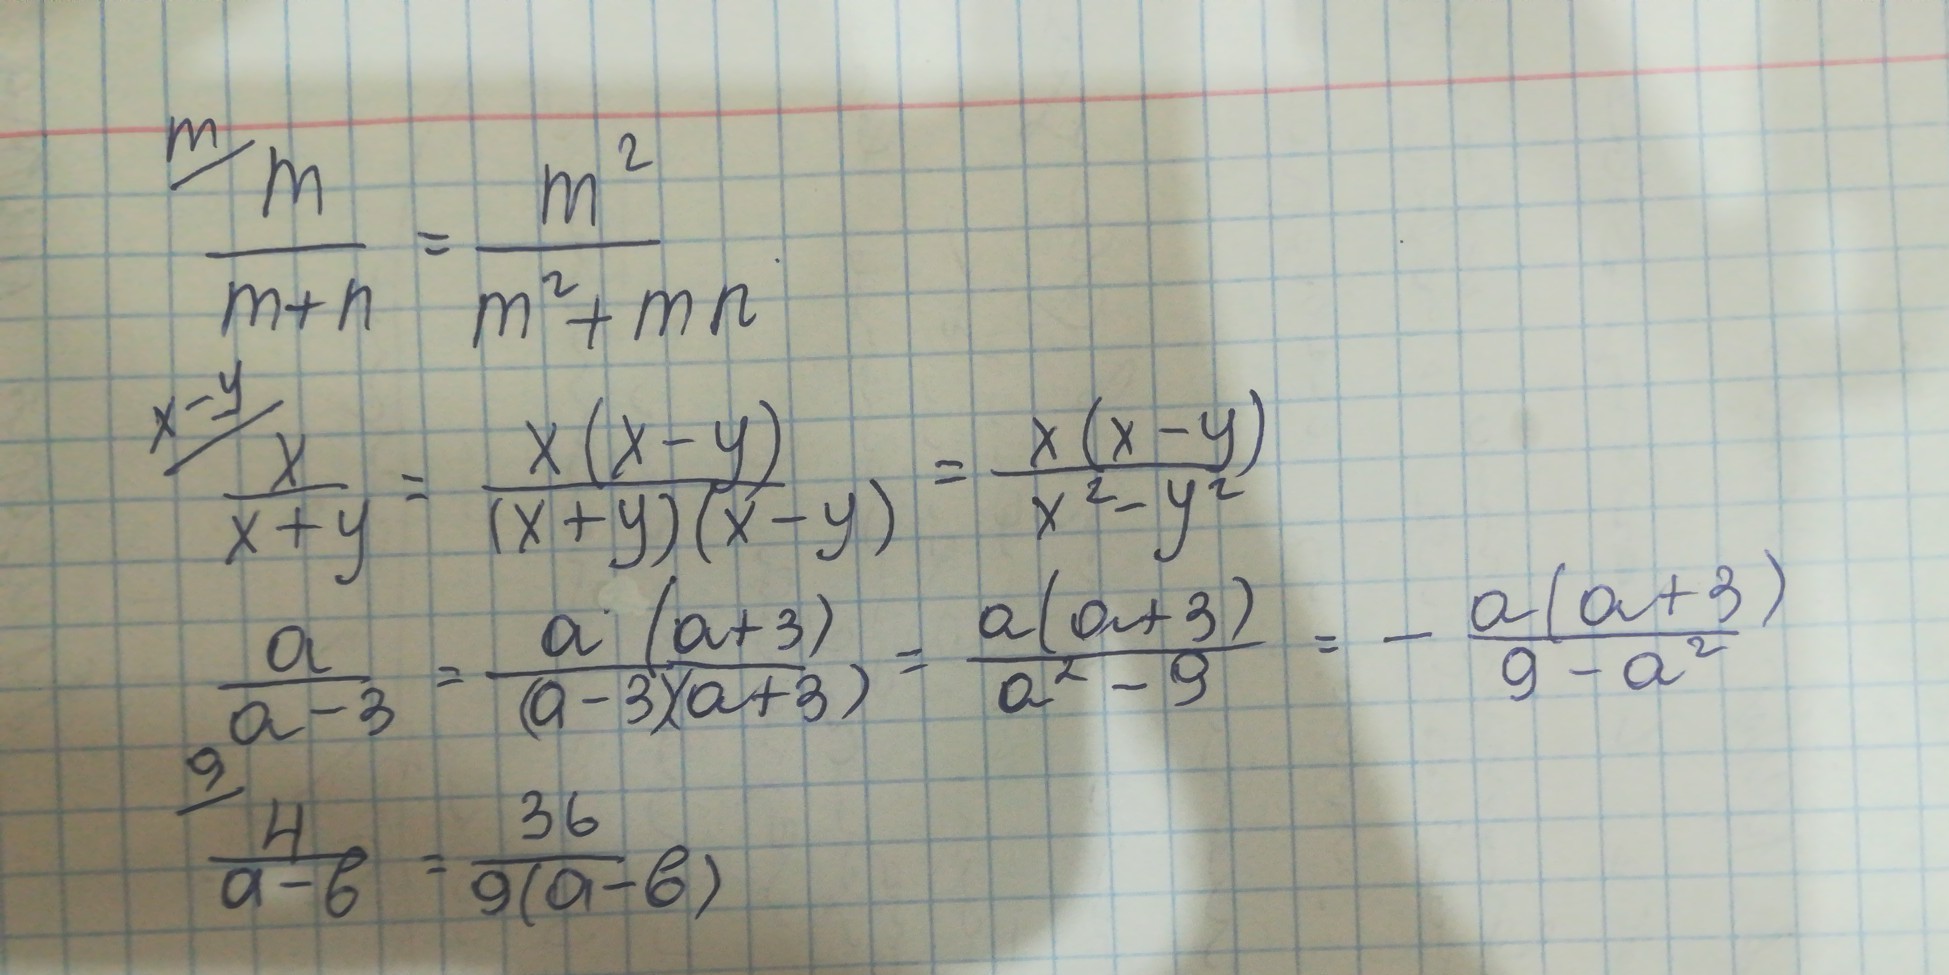 m/ m/(m+n) = m²/(m²+mn)
x-y/ x/(x+y) = x(x-y)/((x+y)(x-y)) = x(x-y)/(x²-y²)
a/(a-3) = a(a+3)/((a-3)(a+3)) = a(a+3)/(a²-9) = - a(a+3)/(9-a²)
9/ 4/(a-b) = 36/(9(a-b))